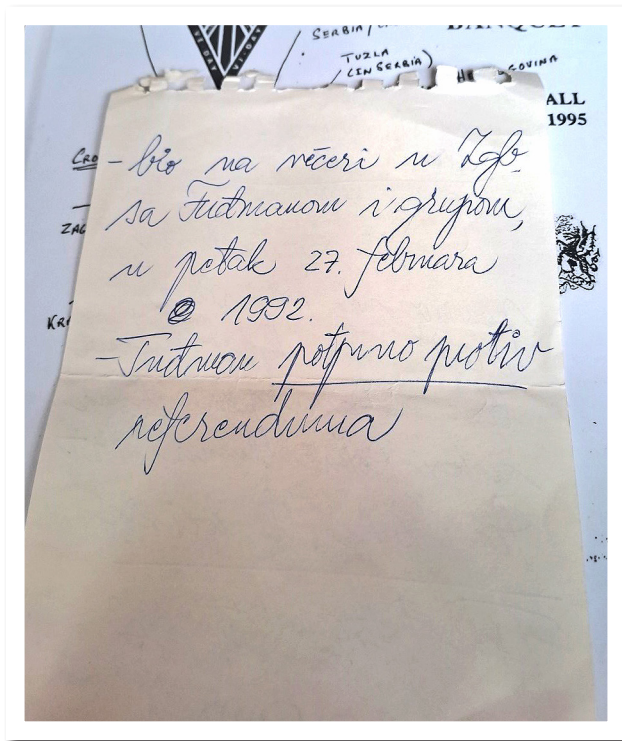 SERBIA/
BANQUET
TUZLA
(IN SERBIA)
ALL
1995
CRO
ZAG
- bio na večeri u Zgb.
sa Tuđmanom i grupom,
u petak 27. februara
1992.
- Tuđman potpuno protiv
referenduma